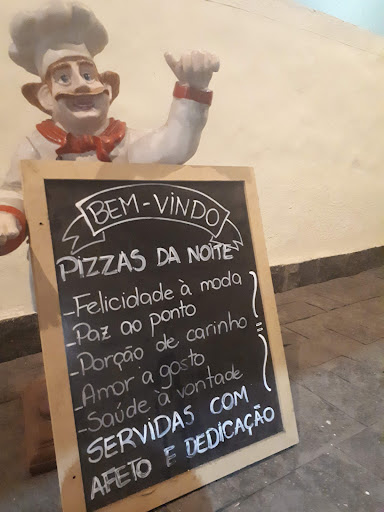 BEM-VINDO
PIZZAS DA NOITE
-Felicidade à moda
-Paz ao ponto
-Porção de carinho
-Amor a gosto
-Saúde à vontade
SERVIDAS COM
AFETO E DEDICAÇÃO